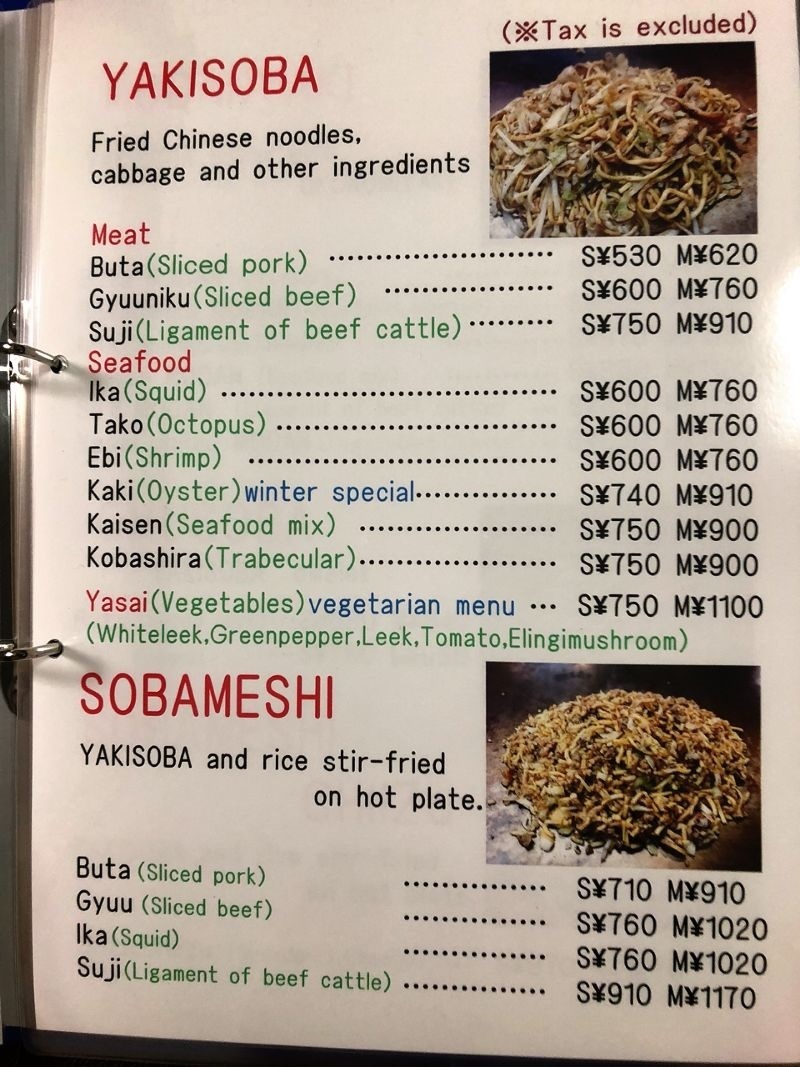 (※Tax is excluded)
YAKISOBA
Fried Chinese noodles,
cabbage and other ingredients
Meat
Buta(Sliced pork) ........................ S¥530 M¥620
Gyuuniku(Sliced beef) ................. S¥600 M¥760
Suji(Ligament of beef cattle)......... S¥750 M¥910
Seafood
Ika(Squid) ................................... S¥600 M¥760
Tako(Octopus) ............................. S¥600 M¥760
Ebi(Shrimp) ................................ S¥600 M¥760
Kaki(Oyster)winter special.............. S¥740 M¥910
Kaisen(Seafood mix) .................... S¥750 M¥900
Kobashira(Trabecular).................... S¥750 M¥900
Yasai(Vegetables)vegetarian menu ... S¥750 M¥1100
(Whiteleek,Greenpepper,Leek,Tomato,Elingimushroom)
SOBAMESHI
YAKISOBA and rice stir-fried
on hot plate.
Buta (Sliced pork) ............... S¥710 M¥910
Gyuu (Sliced beef) ............... S¥760 M¥1020
Ika(Squid) ............... S¥760 M¥1020
Suji(Ligament of beef cattle) ............... S¥910 M¥1170